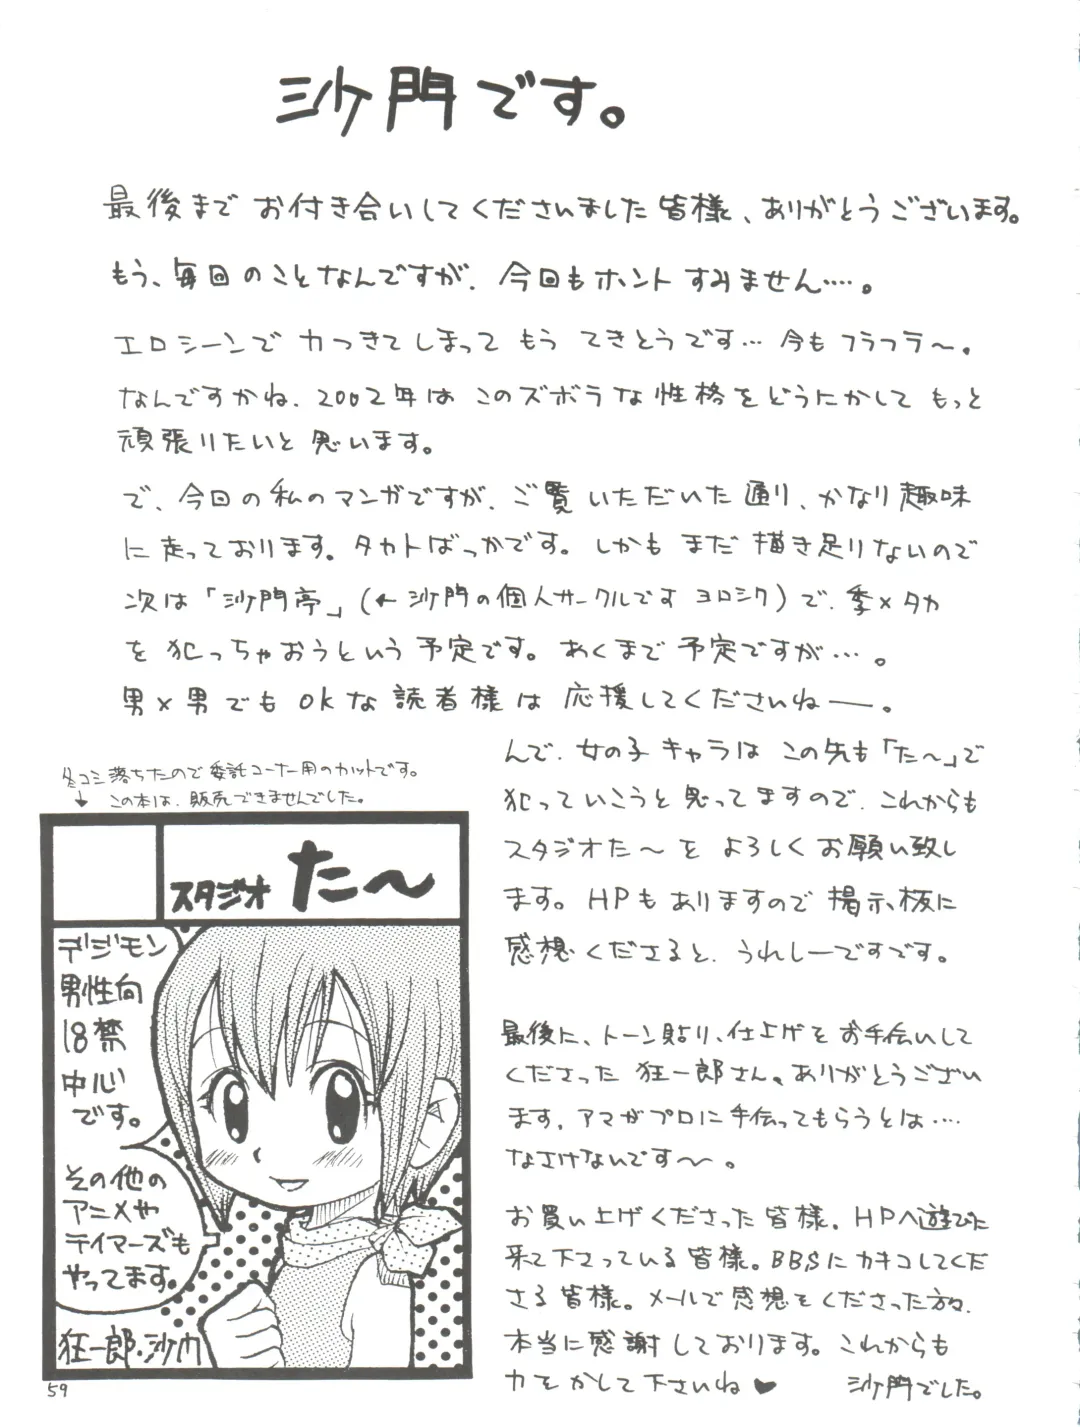 沙門です。
最後まで お付き合いしてくださいました 皆様、ありがとうございます。
もう、毎回のことなんですが、今回もホント すみません……。
エロシーンで 力つきてしまって もう てきとうです… 今も フラフラ〜。
なんですかね、2002年は このズボラな性格をどうにかして もっと
頑張りたいと 思います。
で、今回の 私のマンガですが、ご覧 いただいた 通り、かなり 趣味
に 走っております。タカトばっかです。しかも まだ 描き足りないので
次は「沙門亭」(← 沙門の個人サークルです ヨロシク)で、季×タカ
を 犯っちゃおうという 予定です。あくまで 予定ですが…。
男×男でも OKな 読者様は 応援してくださいねー。
んで、女の子 キャラは この先も「た〜」で
犯っていこうと 思ってますので、これからも
スタジオた〜を よろしく お願い致し
ます。HPも ありますので 掲示板に
感想くださると、うれしーですです。
最後に、トーン貼り、仕上げを お手伝いして
くださった 狂一郎さん。ありがとうござい
ます。アマがプロに 手伝ってもらうとは…
なさけないです〜。
お買い上げくださった 皆様。HPへ遊びに
来て下さっている 皆様。BBSに カキコしてくだ
さる 皆様。メールで 感想をくださった方々、
本当に 感謝しております。これからも
力を かして 下さいね♥
沙門でした。
冬コミ落ちたので 委託コーナー用のカットです。
↓ この本は、販売できませんでした。
スタジオ た〜
デジモン
男性向
18禁
中心
です。
その他の
アニメや
テイマーズも
やってます。
狂一郎・沙門
59